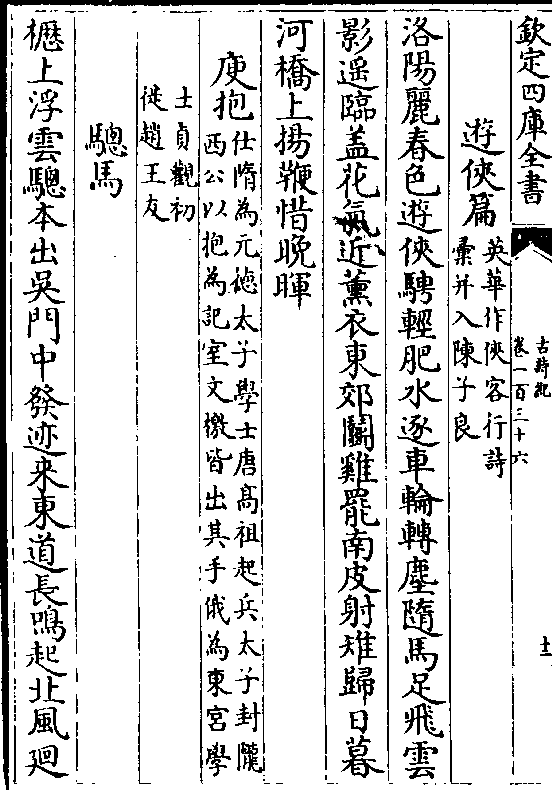 欽定四庫全書
古詩紀
卷一百三十六
十二
遊俠篇
英華作俠客行詩
彚并入陳子良
洛陽麗春色遊俠騁輕肥水逐車輪轉塵隨馬足飛雲
影遥臨盖花氣近薫衣東郊鬬雞罷南皮射雉歸日暮
河橋上揚鞭惜晚暉
庾抱
仕隋為元徳太子學士唐髙祖起兵太子封隴
西公以抱為記室文檄皆出其手俄為東宫學
士貞觀初
徙趙王友
驄馬
櫪上浮雲驄本出吳門中發迹来東道長鳴起北風廻